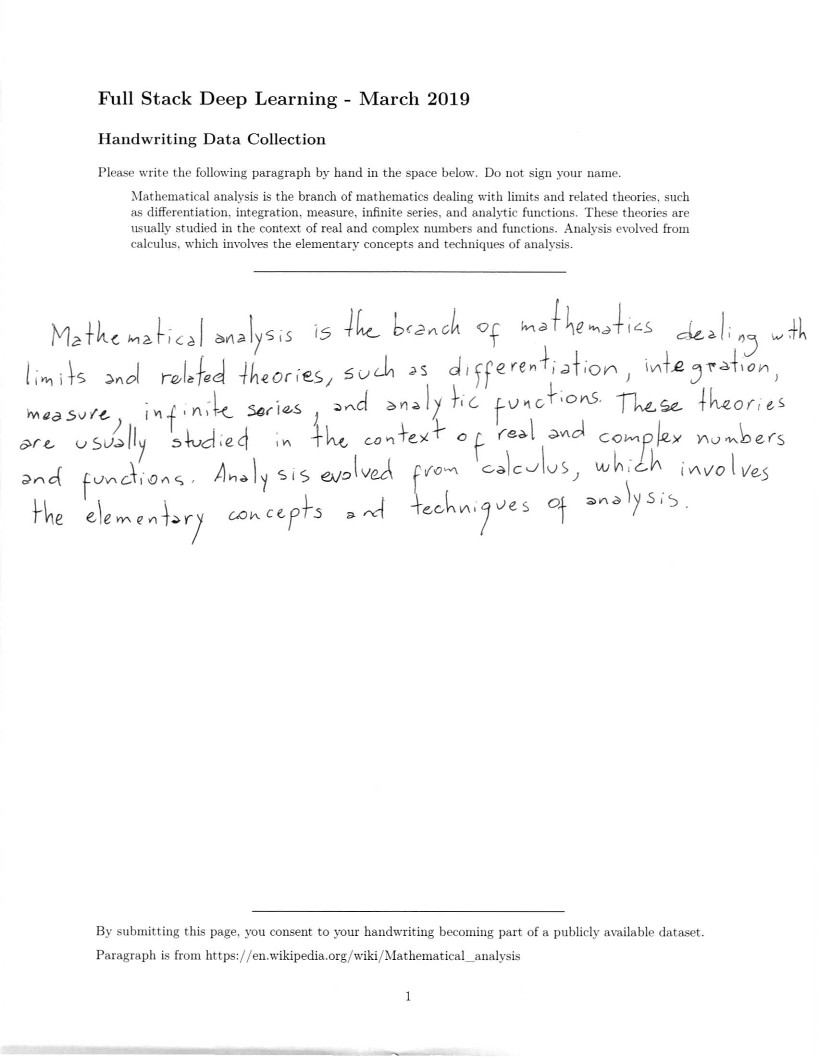 Full Stack Deep Learning - March 2019
Handwriting Data Collection
Please write the following paragraph by hand in the space below. Do not sign your name.
Mathematical analysis is the branch of mathematics dealing with limits and related theories, such
as differentiation, integration, measure, infinite series, and analytic functions. These theories are
usually studied in the context of real and complex numbers and functions. Analysis evolved from
calculus, which involves the elementary concepts and techniques of analysis.
Mathematical analysis is the branch of mathematics dealing with
limits and related theories, such as differentiation, integration,
measure, infinite series, and analytic functions. These theories
are usually studied in the context of real and complex numbers
and functions. Analysis evolved from calculus, which involves
the elementary concepts and techniques of analysis.
By submitting this page, you consent to your handwriting becoming part of a publicly available dataset.
Paragraph is from https://en.wikipedia.org/wiki/Mathematical_analysis
1